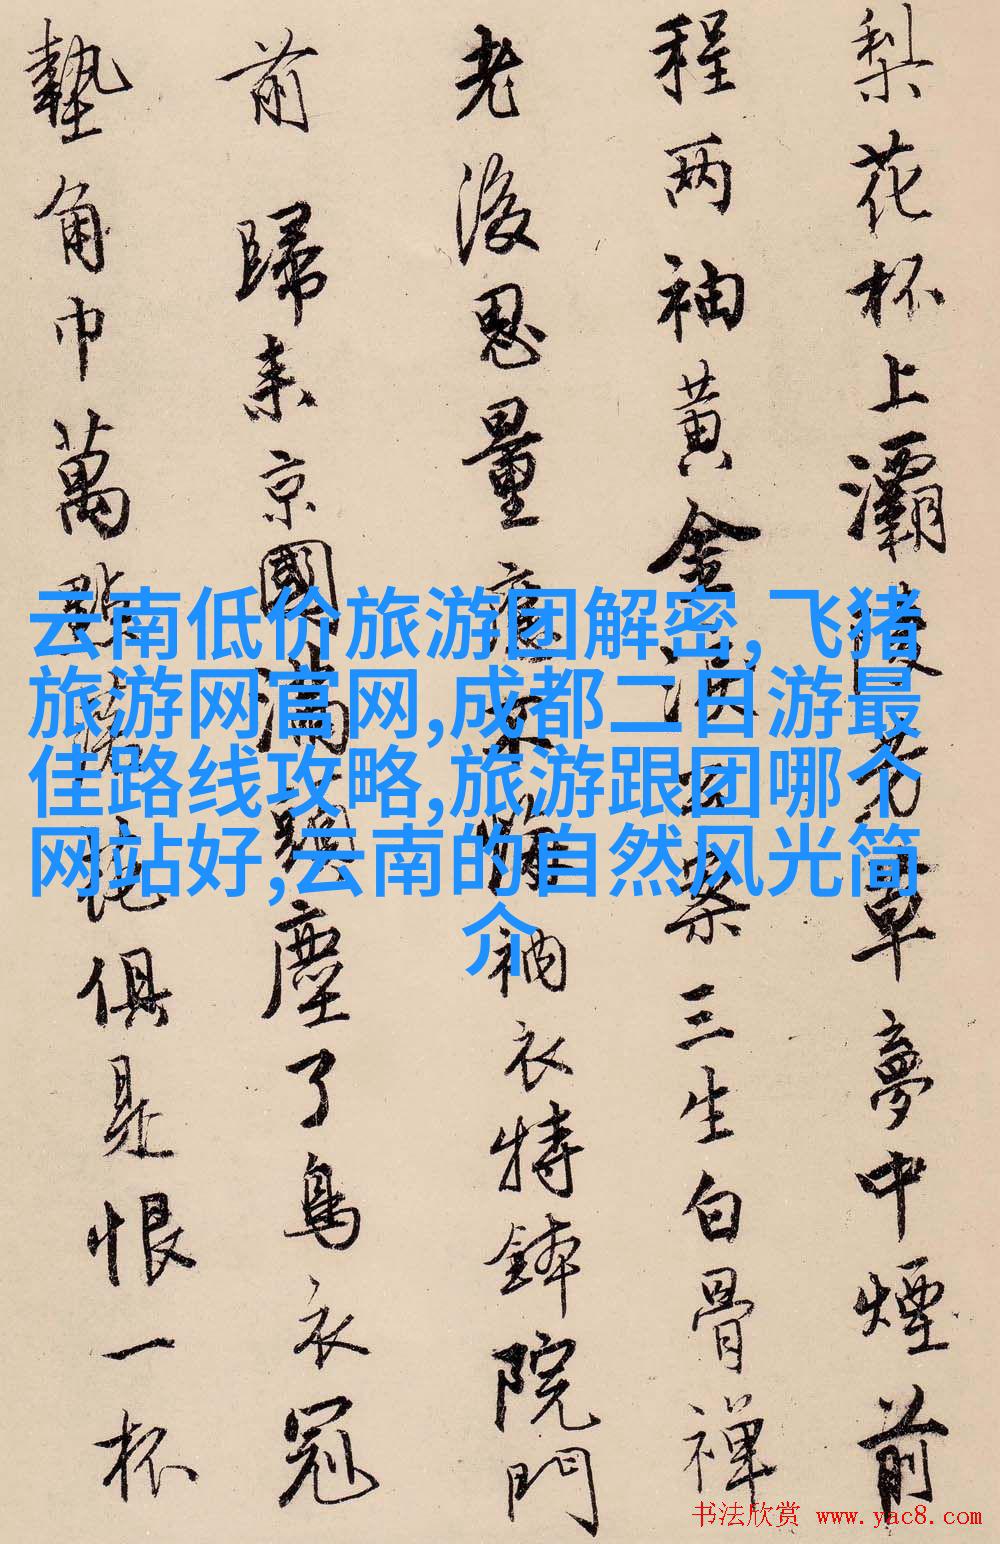 梨花杯上灞陵芳草夢中煙前
程两袖黄金淚公案三生白骨禪
老後思量應不悔衲衣持鉢院門
前歸来京國滿塵了烏衣冠
墊角巾萬點俱是恨一杯
云南低价旅游团解密,飞猪
旅游网官网,成都二日游最
佳路线攻略,旅游跟团哪个
网站好,云南的自然风光简
介
书法欣赏 www.yac8.com